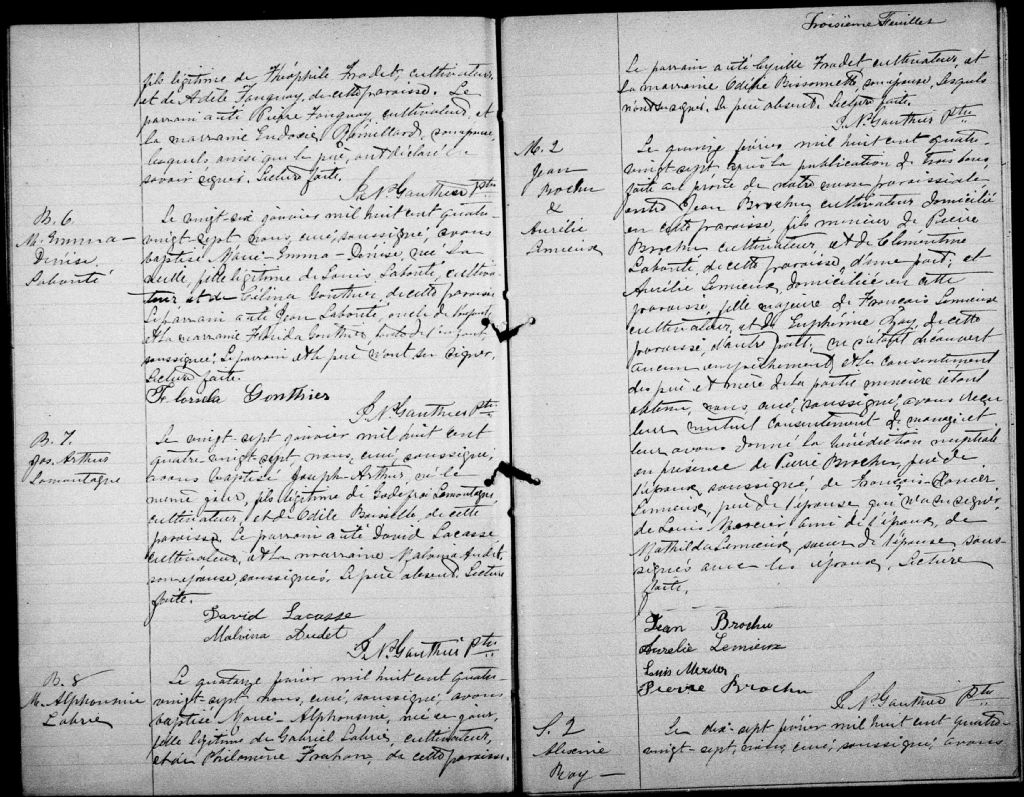 fils légitime de Théophile Fradet, cultivateur,
et de Adèle Tanguay, de cette paroisse. Le
parrain a été Pierre Tanguay, cultivateur, et
la marraine Eudoxie Rémillard, son épouse,
lesquels ainsi que le père, ont déclaré ne
savoir signer. Lecture faite.
J. N. Gauthier Ptre
B. 6.
M. Emma-
Denise
Labonté
Le vingt-six janvier mil huit cent quatre-
vingt-sept nous, curé, soussigné, avons
baptisé Marie-Emma-Denise, née la
veille, fille légitime de Louis Labonté, cultiva-
teur et de Célina Gonthier, de cette paroisse.
Le parrain a été Jean Labonté, oncle de l'enfant,
et la marraine Florida Gonthier, tante de l'enfant,
soussignée. Le parrain et le père n'ont su signer.
Lecture faite.
Florida Gonthier
J. N. Gauthier Ptre
B. 7.
Jos. Arthur
Lamontagne
Le vingt-sept janvier mil huit cent
quatre-vingt-sept, nous, curé, soussigné,
avons baptisé Joseph-Arthur, né le
même jour, fils légitime de Godefroi Lamontagne,
cultivateur, et de Odile, de cette
paroisse. Le parrain a été David Lacasse
cultivateur, et la marraine Malvina Audet,
son épouse, soussignés. Le père absent. Lecture
faite.
David Lacasse
Malvina Audet
J. N. Gauthier Ptre
B. 8
M. Alphonsine
Labrie
Le quatorze février mil huit cent quatre-
vingt-sept nous, curé, soussigné, avons
baptisé Marie-Alphonsine, née ce jour,
fille légitime de Gabriel Labrie, cultivateur,
et de Philomène Frahan, de cette paroisse.
Troisième Feuillet
Le parrain a été Cyrille Fradet cultivateur, et
la marraine Odile Bissonnette, son épouse, lesquels
n'ont su signer. Le père absent. Lecture faite.
J. N. Gauthier Ptre
M. 2
Jean
Brochu
&
Aurélie
Lemieux
Le quinze février mil huit cent quatre-
vingt-sept après la publication de trois bans
faite au prône de notre messe paroissiale
entre Jean Brochu cultivateur domicilié
en cette paroisse, fils mineur de Pierre
Brochu cultivateur, et de Clémentine
Labonté, de cette paroisse, d'une part; et
Aurélie Lemieux, domiciliée en cette
paroisse, fille majeure de François Lemieux
cultivateur, et de Euphémie Roy, de cette
paroisse, d'autre part; ne s'étant découvert
aucun empêchement, et les consentement
des père et mère de la partie mineure étant
obtenu, nous, curé, soussigné, avons reçu
leur mutuel consentement de mariage et
leur avons donné la bénédiction nuptiale
en présence de Pierre Brochu, père de
l'époux, soussigné, de François-Xavier
Lemieux, père de l'épouse qui n'a su signer,
de Louis Mercier ami de l'époux, de
Mathilda Lemieux, soeur de l'épouse, sous-
signés avec les époux. Lecture
faite.
Jean Brochu
Aurelie Lemieux
Louis Mercier
Pierre Brochu
J. N. Gauthier Ptre
S. 2
Roy
Le dix-sept février mil huit cent quatre-
vingt-sept, nous, curé, soussigné, avons